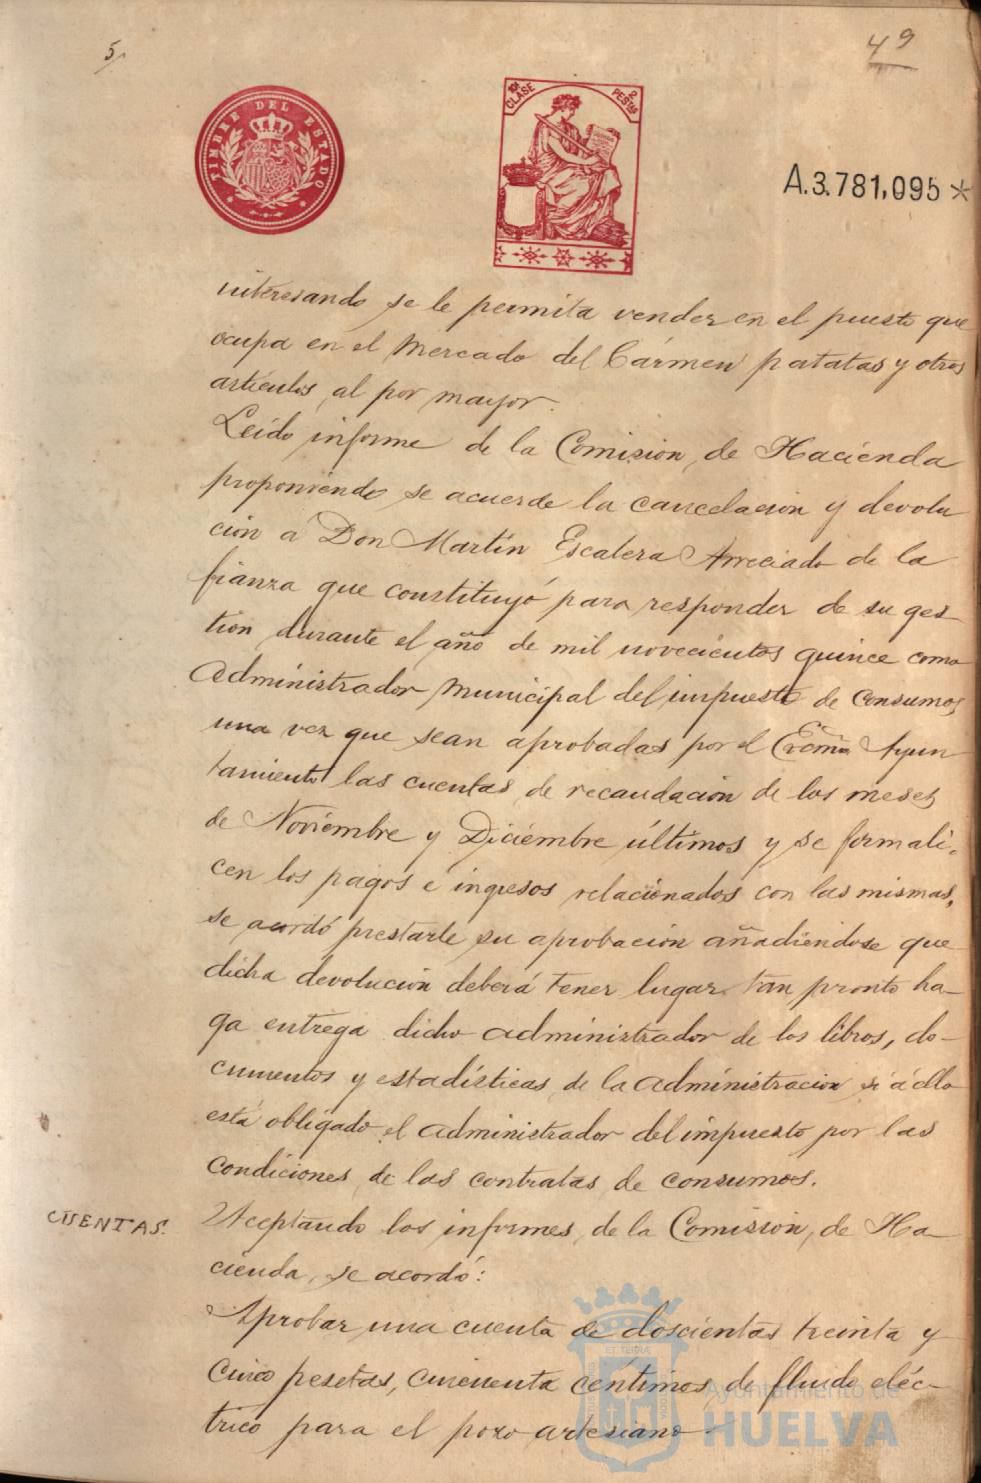 5
49
TIMBRE DEL ESTADO
10ª CLASE
2 PESTAS
A.3.781,095*
interesando se le permita vender en el puesto que
ocupa en el Mercado del Cármen patatas y otros
artículos, al por mayor.
Leido informe de la Comision, de Hacienda
proponiendo se acuerde la cancelacion y devolu
cion a Don Martin Escalera Arreciado de la
fianza que constituyó para responder de su ges
tion durante el año de mil novecientos quince como
Administrador Municipal del impuesto de Consumos
una vez que sean aprobadas por el Excmo Ayun
tamiento las cuentas de recaudacion de los meses
de Noviembre y Diciembre últimos y se formali-
cen los pagos e ingresos relacionados con las mismas,
se acordó prestarle su aprobacion añadiendose que
dicha devolucion deberá tener lugar tan pronto ha-
ga entrega dicho administrador de los libros, do-
cumentos y estadísticas, de la administracion si á ello
está obligado el administrador del impuesto por las
condiciones de las contratas de consumos.
CUENTAS.
Aceptando los informes, de la Comision, de Ha-
cienda, se acordó:
Aprobar una cuenta de doscientas treinta y
cinco pesetas, cincuenta céntimos de fluido eléc-
trico para el pozo artesiano
Ayuntamiento de
HUELVA